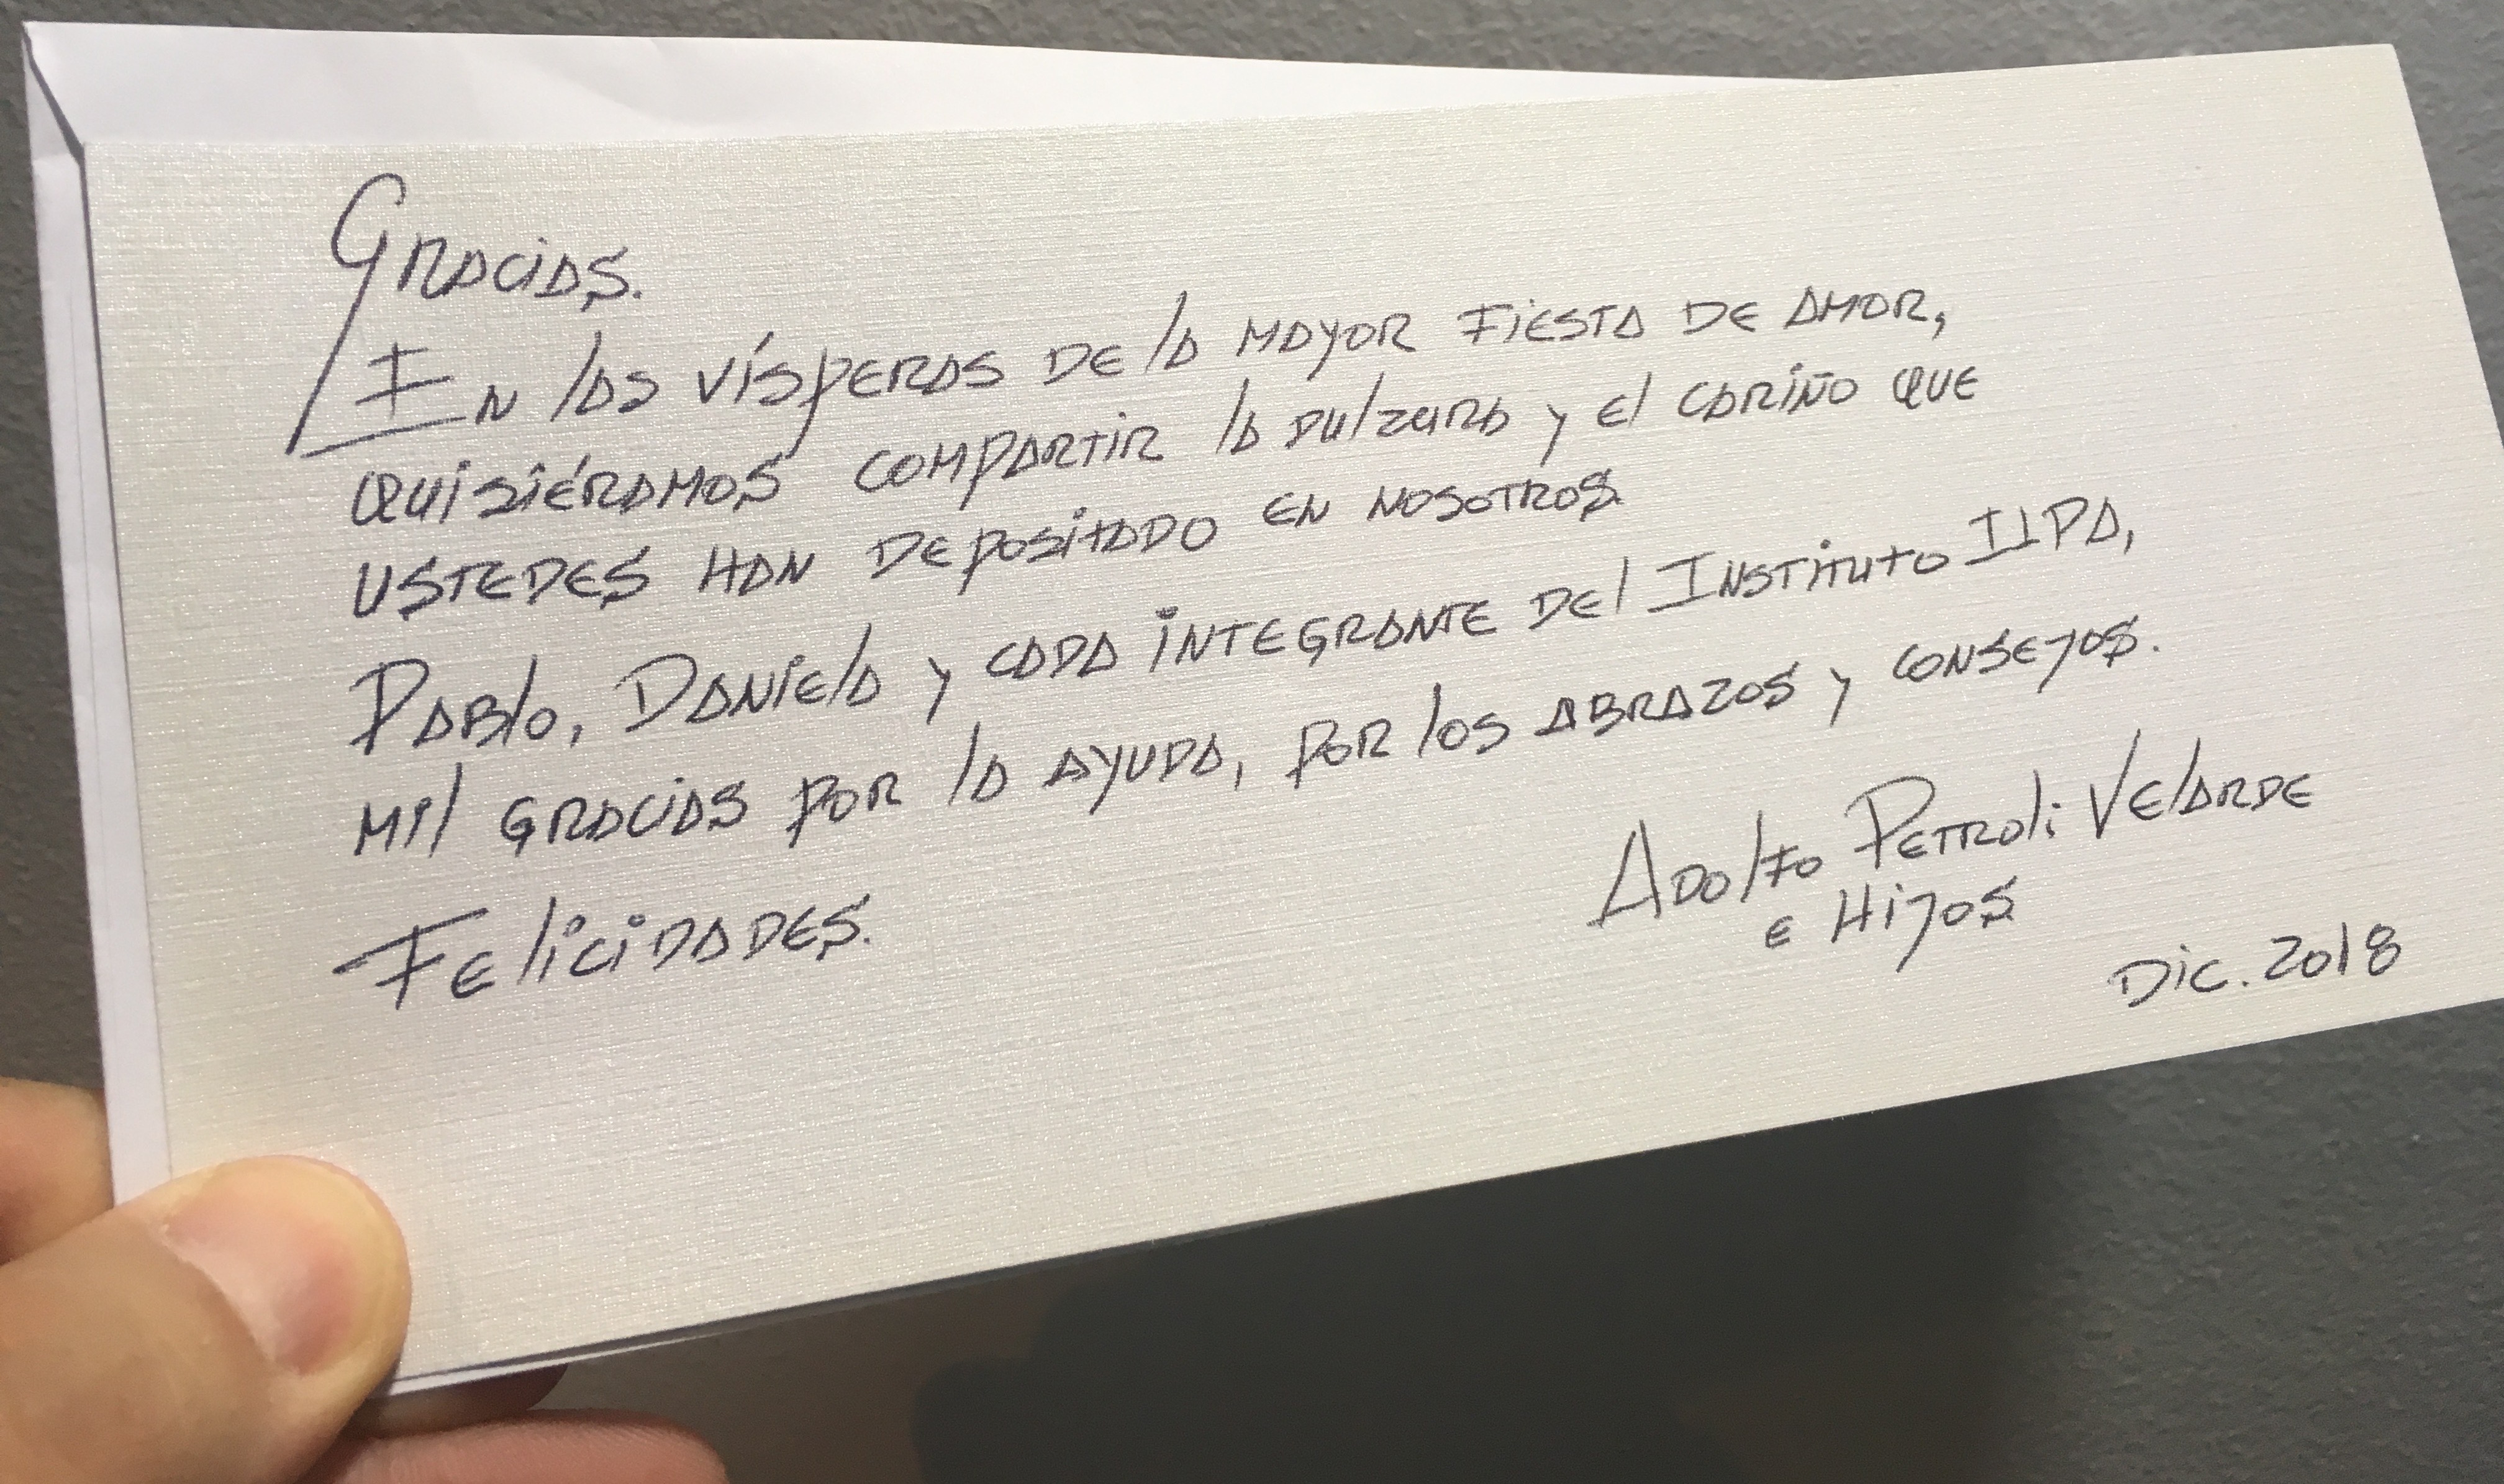 Gracias.
En las vísperas de la mayor fiesta de amor,
quisiéramos compartir la dulzura y el cariño que
ustedes han depositado en nosotros.
Pablo, Daniela y cada integrante del Instituto IIPA,
mil gracias por la ayuda, por los abrazos y consejos.
Felicidades.
Adolfo Petroli Velarde
e Hijos
Dic. 2018